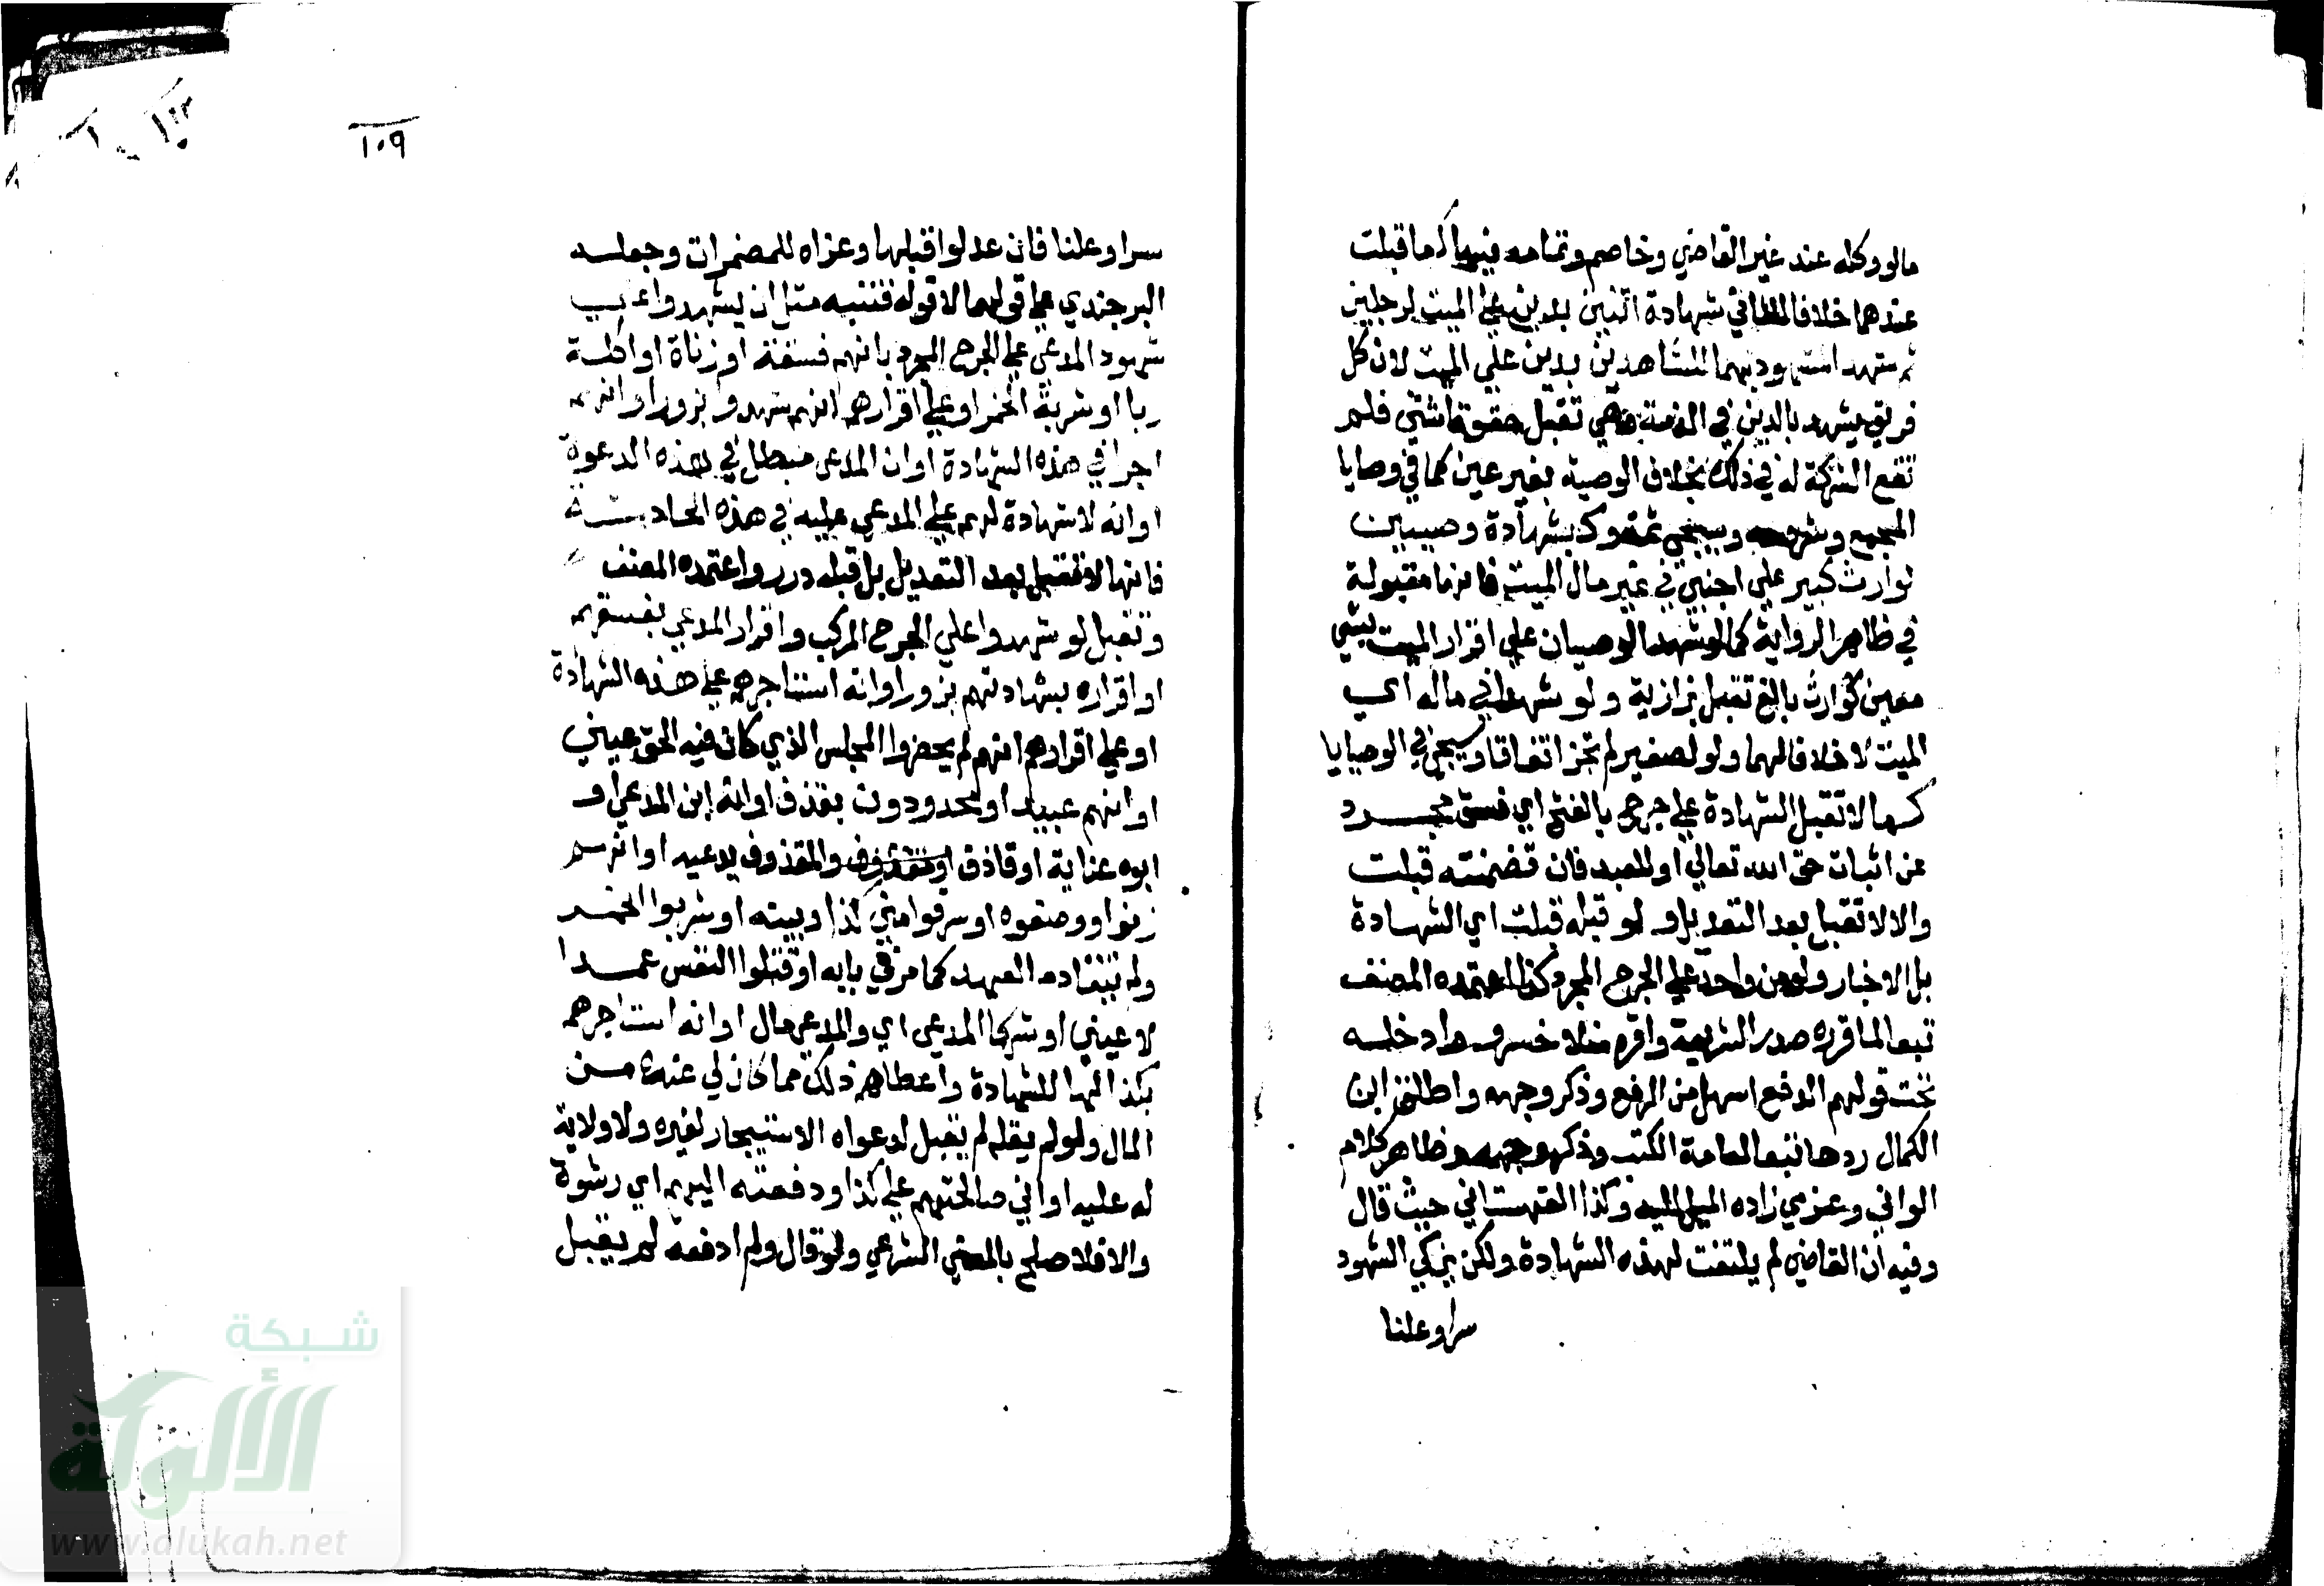 مالو وكله عند غير القاضي وخاصم وتمامه فيها كما قبلت
عندهما خلافا للثاني شهادة اثنين بدين علي الميت لرجلين
ثم شهد المشهود لهما للشاهدين بدين علي الميت لان كل
فريق يشهد بالدين في الذمة وهي تقبل حقوقا شتي فلم
تقع الشركة له في ذلك بخلاف الوصية بغير عين كما في وصايا
المجمع وشرحه وسيجي ثمه وكذا شهادة وصيين
لوارث كبير علي اجنبي في غير مال الميت فانها مقبولة
في ظاهر الرواية كما لو شهد الوصيان علي اقرار الميت بشي
معين لوارث بالغ تقبل بزازية ولو شهدا في ماله اي
الميت لا خلافا لهما ولو لصغير لم تجز اتفاقا وسيجي في الوصايا
كما لا تقبل الشهادة علي جرح بالفتح اي فسق مجرد
عن اثبات حق الله تعالي او للعبد فان تضمنته قبلت
والا لا تقبل بعد التعديل ولو قبله قبلت اي الشهادة
بل الاخبار ولو من واحد علي الجرح المجرد كذا اعتمده المصنف
تبعا لما قرره صدر الشريعة واقره منلا خسرو وادخله
تحت قولهم الدفع اسهل من الرفع وذكر وجهه واطلق ابن
الكمال ردها تبعا لعامة الكتب وذكر وجهه وظاهر كلام
الواني وعزمي زاده الميل اليه وكذا القهستاني حيث قال
وفيه ان القاضي لم يلتفت لهذه الشهادة ولكن يزكي الشهود
سرا وعلنا
١٠٩
سرا وعلنا فان عدلوا قبلها وعزاه للمضمرات وجعله
البرجندي علي قولهما لا قوله فتنبه مثل ان يشهدوا علي
شهود المدعي علي الجرح المجرد بانهم فسقة او زناة او اكلة
ربا او شربة الخمر او علي اقرارهم انهم شهدوا بزور او انهم
اجرا في هذه الشهادة او ان المدعي مبطل في هذه الدعوة
او انه لا شهادة لهم علي المدعي عليه في هذه الحادثة
فانها لا تقبل بعد التعديل بل قبله درر واعتمده المصنف
وتقبل لو شهدوا علي الجرح المركب واقرار المدعي بفسقهم
او اقراره بشهادتهم بزور او انه استاجرهم علي هذه الشهادة
او علي اقرارهم انهم لم يحضروا المجلس الذي كان فيه الحق عيني
او انهم عبيد او محدودون بقذف او انه ابن المدعي او
ابوه عناية او قاذف والمقذوف يدعيه او انهم
زنوا ووصفوه او سرقوا مني كذا وبينه او شربوا الخمر
ولم يتقادم العهد كما مر في بابه او قتلوا النفس عمدا
لا عيني او شركا المدعي اي والمدعي مال او انه استاجرهم
بكذا لها للشهادة واعطاهم ذلك مما كان لي عنده من
المال ولو لم يقله لم يقبل لدعواه الاستيجار لغيره ولا ولاية
له عليه او اني صالحتهم علي كذا ودفعته اليهم اي رشوة
والا فلا صلح بالمعني الشرعي ولو قال ولم ادفعه لم يقبل
شبكة
الألوكة
www.alukah.net